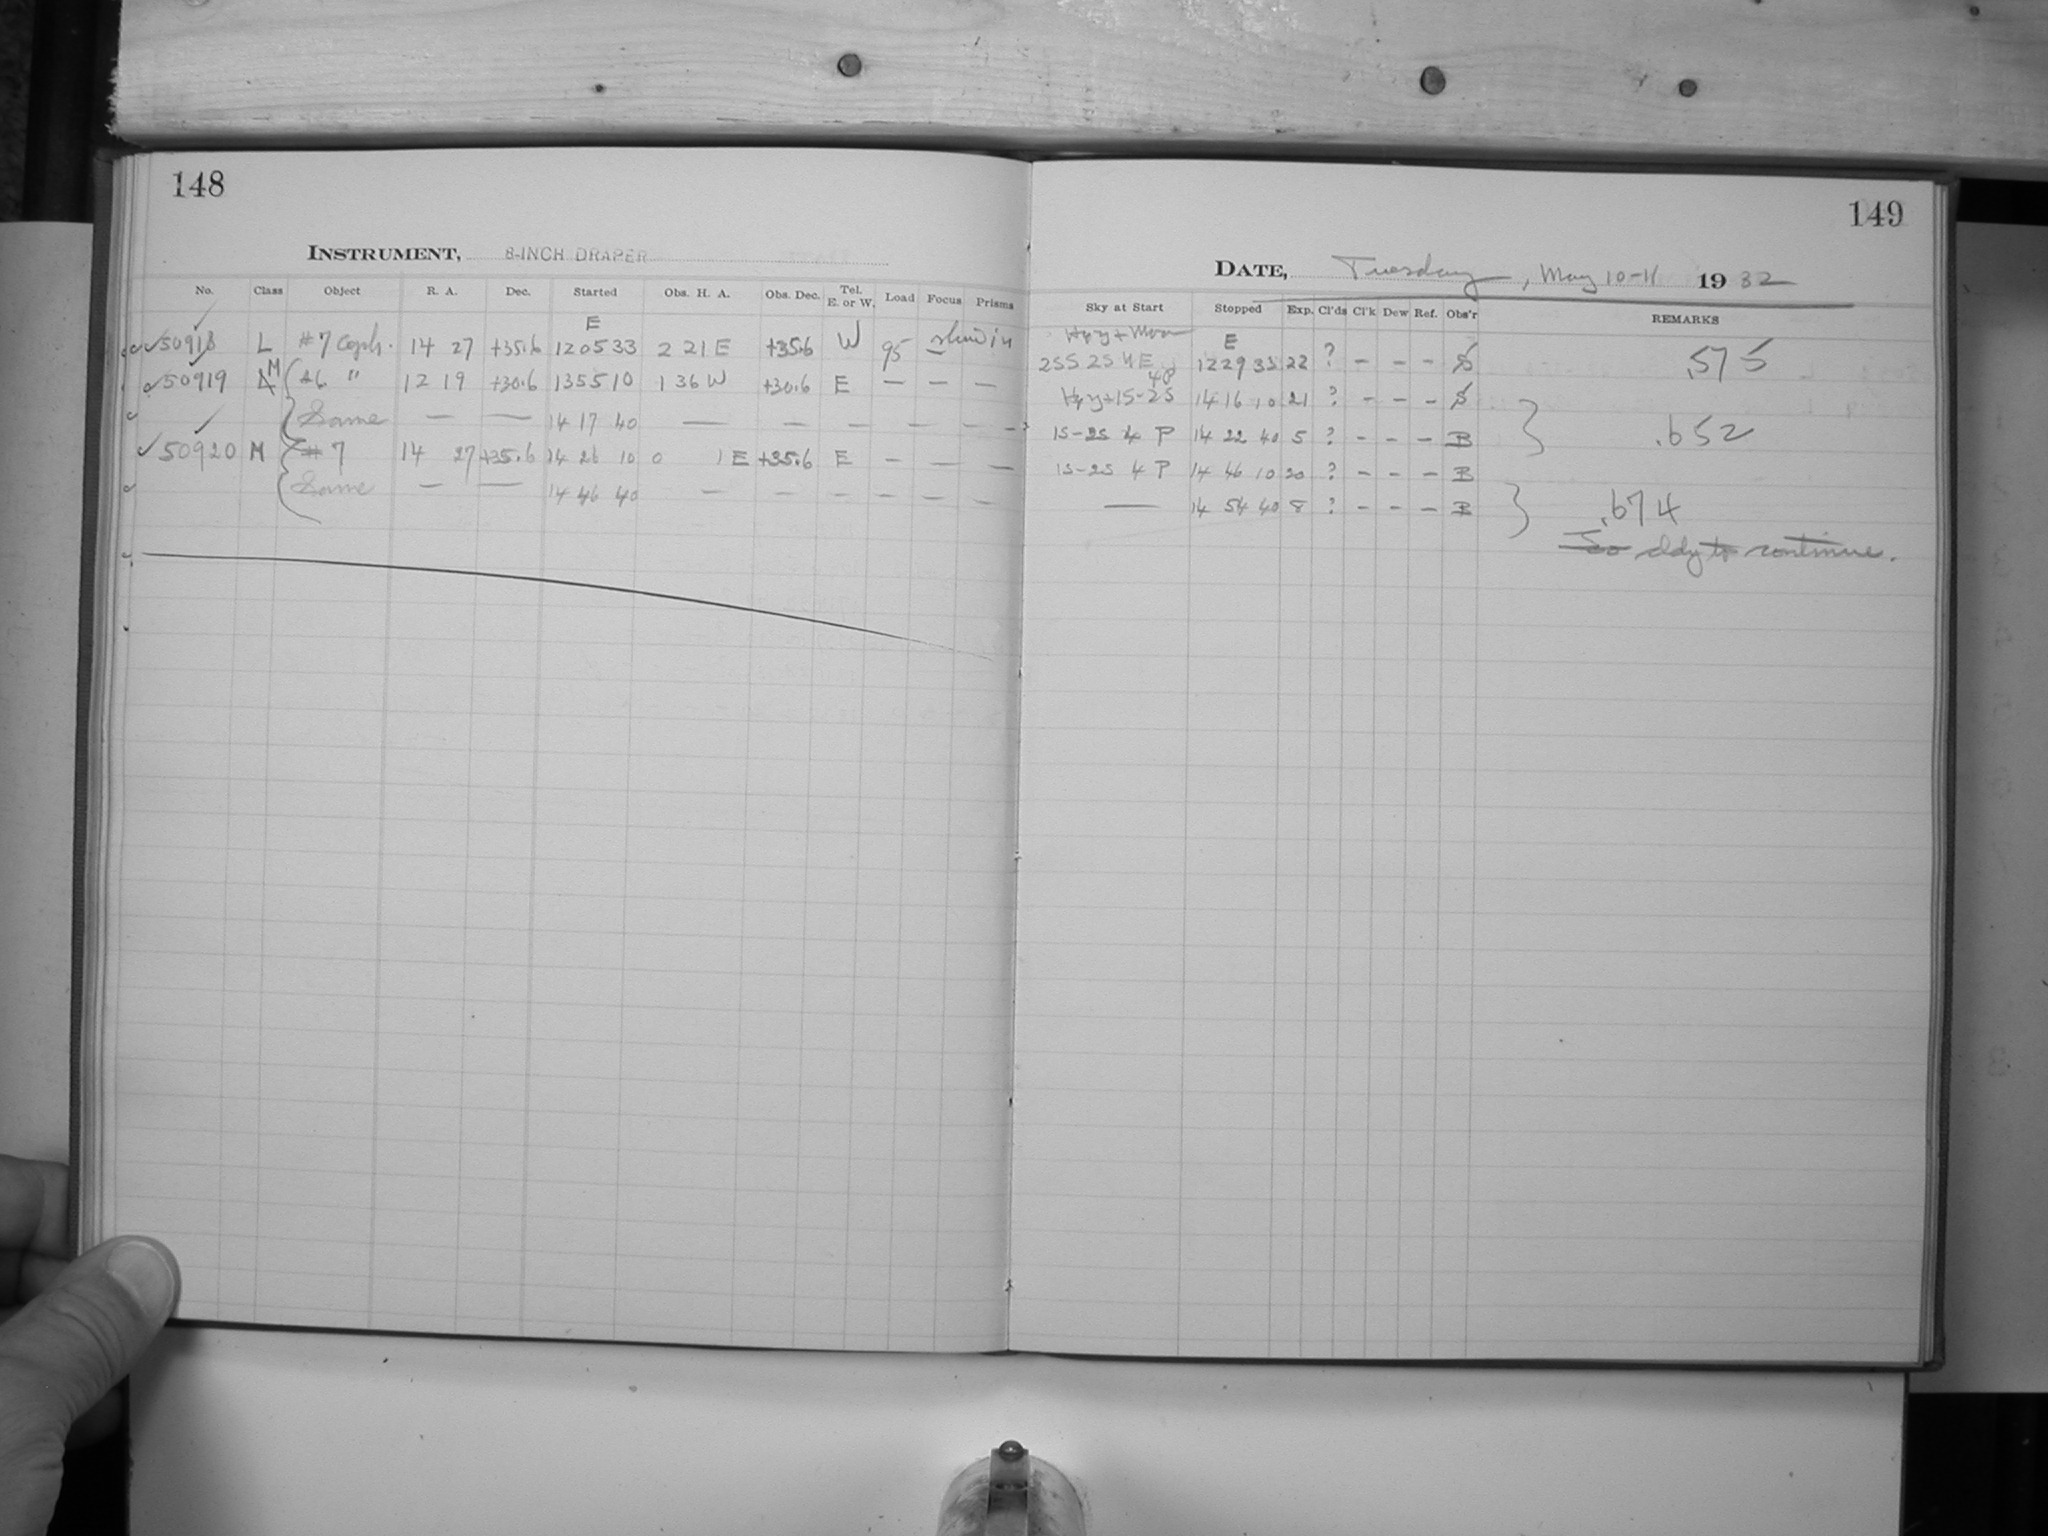 148
INSTRUMENT, 8-INCH DRAPER
No. Class Object R. A. Dec. Started Obs. H. A. Obs. Dec. Tel. E. or W. Load Focus Prisms
E
50918 L #7 Ceph. 14 27 +35.6 12 05 33 2 21 E +35.6 W 95 —
50919 M 26 " 12 19 +30.6 13 55 10 1 36 W +30.6 E — — —
Same — — 14 17 40 — — — — — —
50920 M #7 14 27 +35.6 14 26 10 0 1 E +35.6 E — — —
Same — — 14 46 40 — — — — — —
149
DATE, Tuesday, May 10-11 1932
Sky at Start Stopped Exp. Cl'ds Cl'k Dew Ref. Obs'r REMARKS
Hzy + Moon E
12 29 33 22 ? — — — S .575
Hzy + 1S-2S 14 16 10 21 ? — — — S
1S-2S 4 P 14 22 40 5 ? — — — B .652
1S-2S 4 P 14 46 10 20 ? — — — B
— 14 54 40 8 ? — — — B .674
Too cldy to continue.